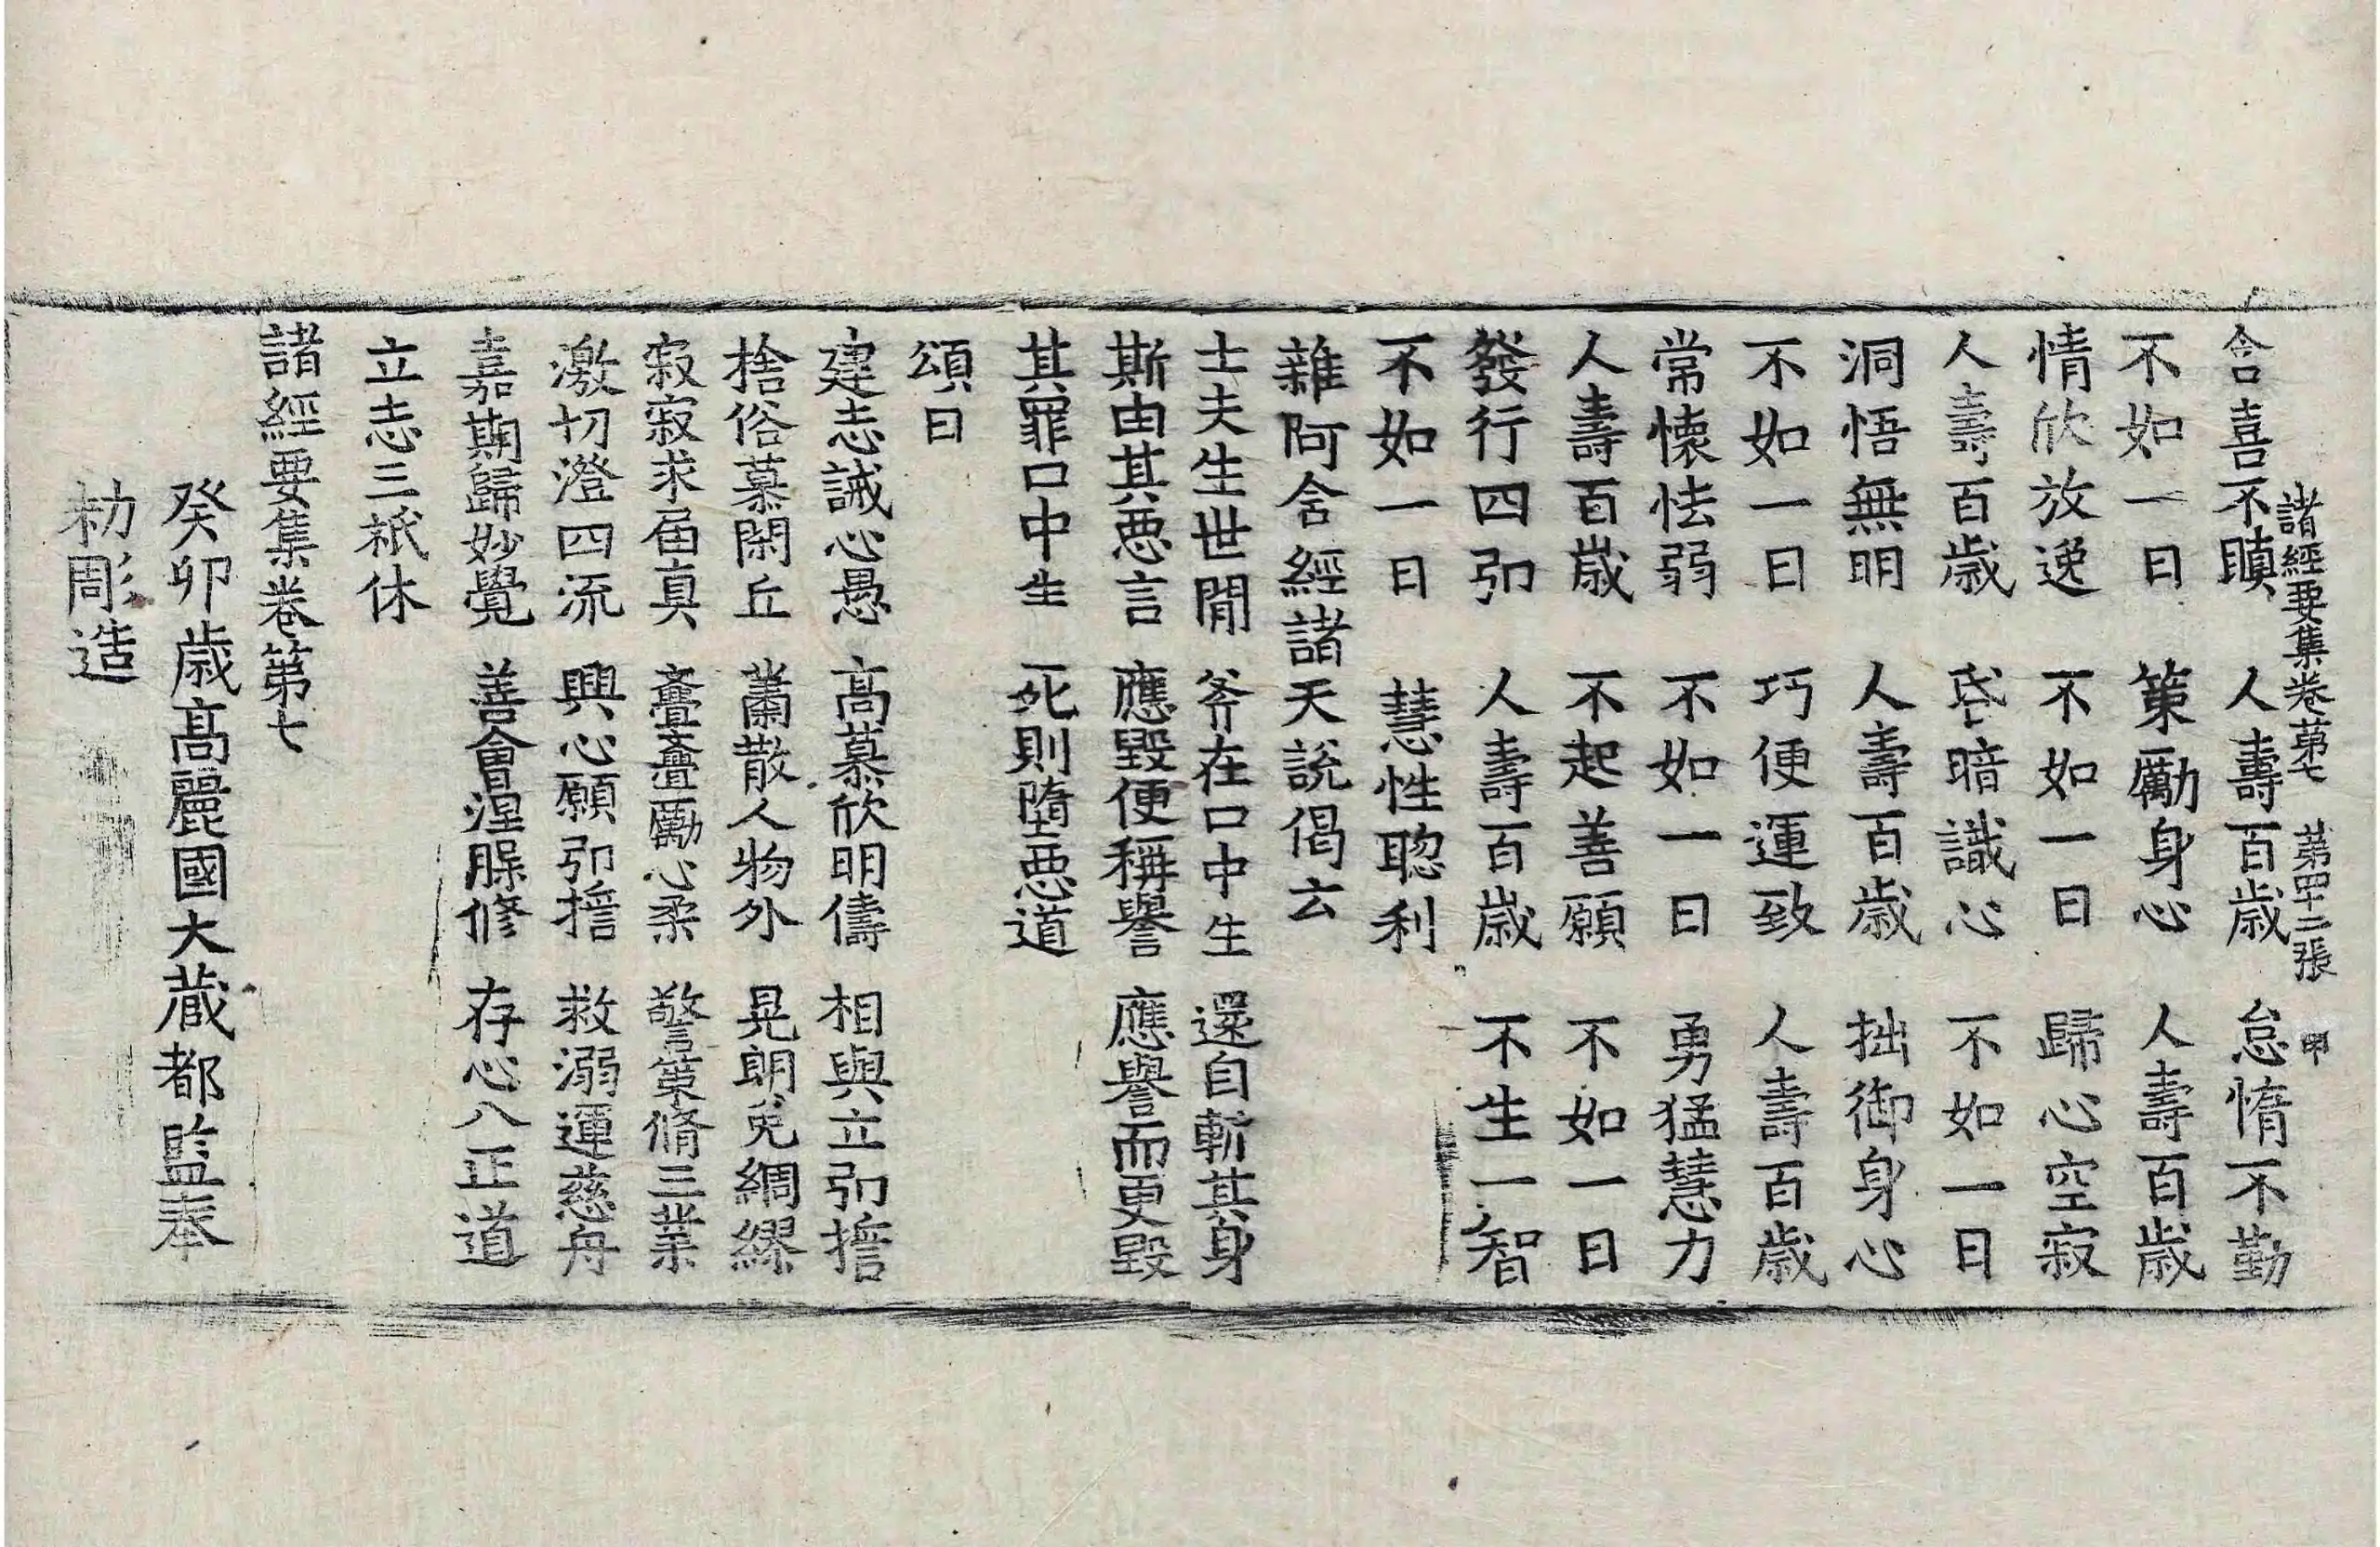 諸經要集卷第七 第四十二張 甲
含喜不瞋 人壽百歲 怠惰不勤
不如一日 策勵身心 人壽百歲
情欣放逸 不如一日 歸心空寂
人壽百歲 昏暗識心 不如一日
洞悟無明 人壽百歲 拙御身心
不如一日 巧便運致 人壽百歲
常懷怯弱 不如一日 勇猛慧力
人壽百歲 不起善願 不如一日
發行四弘 人壽百歲 不生一智
不如一日 慧性聰利
雜阿含經諸天說偈云
士夫生世閒 斧在口中生 還自斬其身
斯由其惡言 應毀便稱譽 應譽而更毀
其罪口中生 死則墮惡道
頌曰
建志誡心愚 高慕欣明儔 相與立弘擔
捨俗慕閑丘 蕭散人物外 晃朗免綢繆
寂寂求届真 亹亹勵心柔 警策脩三業
激切澄四流 興心願弘擔 救溺運慈舟
嘉期歸妙覺 善會涅脲修 存心八正道
立志三祇休
諸經要集卷第七
癸卯歲高麗國大藏都監奉
勅彫造